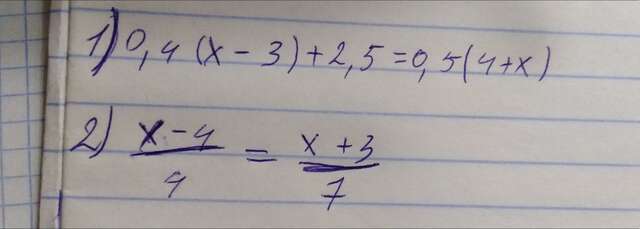 1) 0,4 (x - 3) + 2,5 = 0,5 (4 + x)
2) (x - 4)/4 = (x + 3)/7